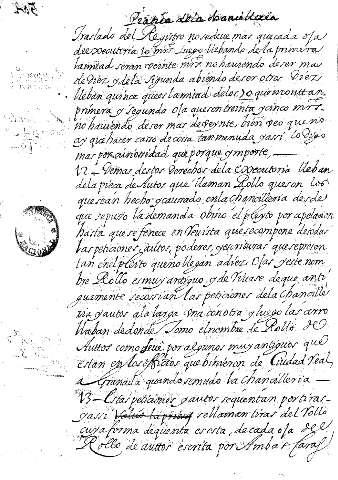 Practica de la Chancilleria
Traslado del Registro no se deue mas que cada oja
de executoria 30 mrs. luego llebando de la primera
la mitad seran veinte mrs. no haviendo de ser mas
de Diez, y de la segunda abiendo de ser otros Diez
lleban quince que es la mitad de los 30 que montan
primera y segunda oja que son treinta y cinco mrs.
no haviendo de ser mas de veynte, bien veo que no
ay que hacer caso de cosa tan menuda y assi lo digo
mas por curiosidad que porque ymporte,
V2 - Demas destos Derechos de la executoria lleban
de la pieza de Autos que llaman Rollo que son los
que se an hecho y causado en la Chancilleria desde
que se puso la demanda o bino el pleyto por apelacion
hasta que se fenece en Revista que se compone de todas
las peticiones, autos, poderes, y escrituras que se presen
tan en el pleito que no llegan a diez ojas, y este nom
bre Rollo es muy antiguo y de que anti
guamente se cossian las peticiones de la Chancille
ria y autos a la larga una con otra y luego las arro
llaban de donde tomo el nombre de Rollo de
Auttos como de algunos muy antiguos que
estan en los officios que binieron de Ciudad Real
a Granada quando se mudo la Chancilleria
V3 - Estas peticiones y autos se quentan por tiras
y assi se llaman tiras del Rollo
cuya forma de quenta es esta, de cada oja de
Rollo de auttos escrita por Ambas Caras